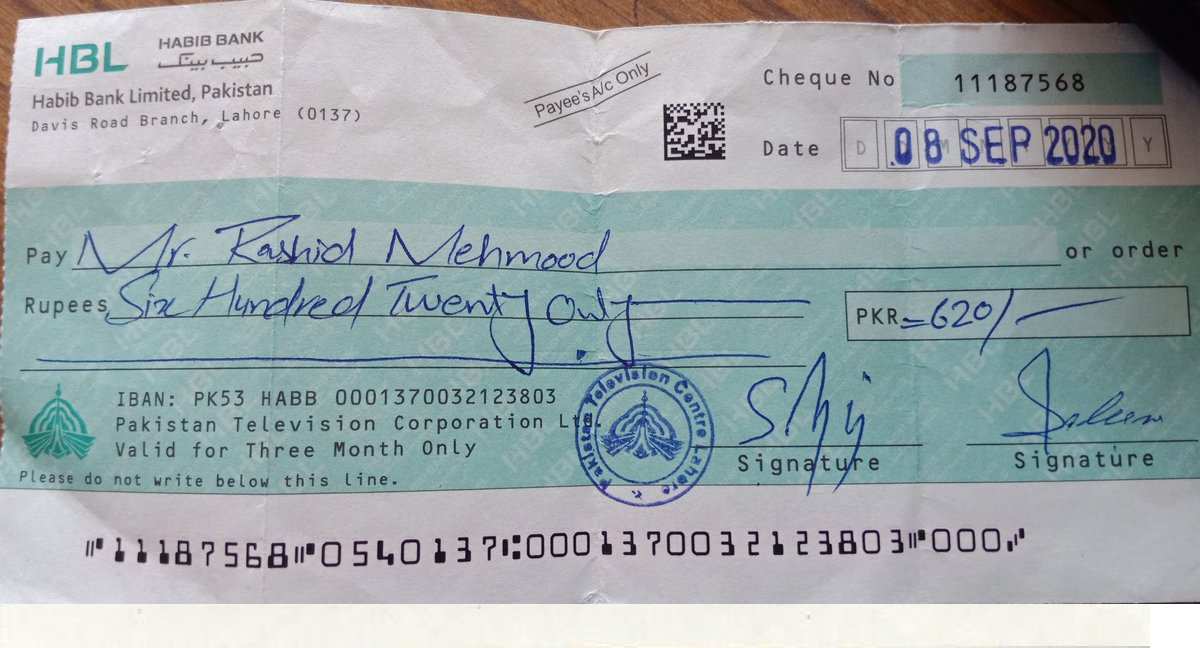 HBL HABIB BANK
حبیب بینک
Habib Bank Limited, Pakistan
Davis Road Branch, Lahore (0137)
Payee's A/c Only
Cheque No 11187568
Date 08 SEP 2020 Y
Pay Mr. Rashid Mehmood or order
Rupees Six Hundred Twenty Only
PKR =620/-
IBAN: PK53 HABB 0001370032123803
Pakistan Television Corporation Ltd.
Valid for Three Month Only
Please do not write below this line.
Pakistan Television Centre Lahore
Signature
Signature
⑈11187568⑈0540137⑆0001370032123803⑈000⑈